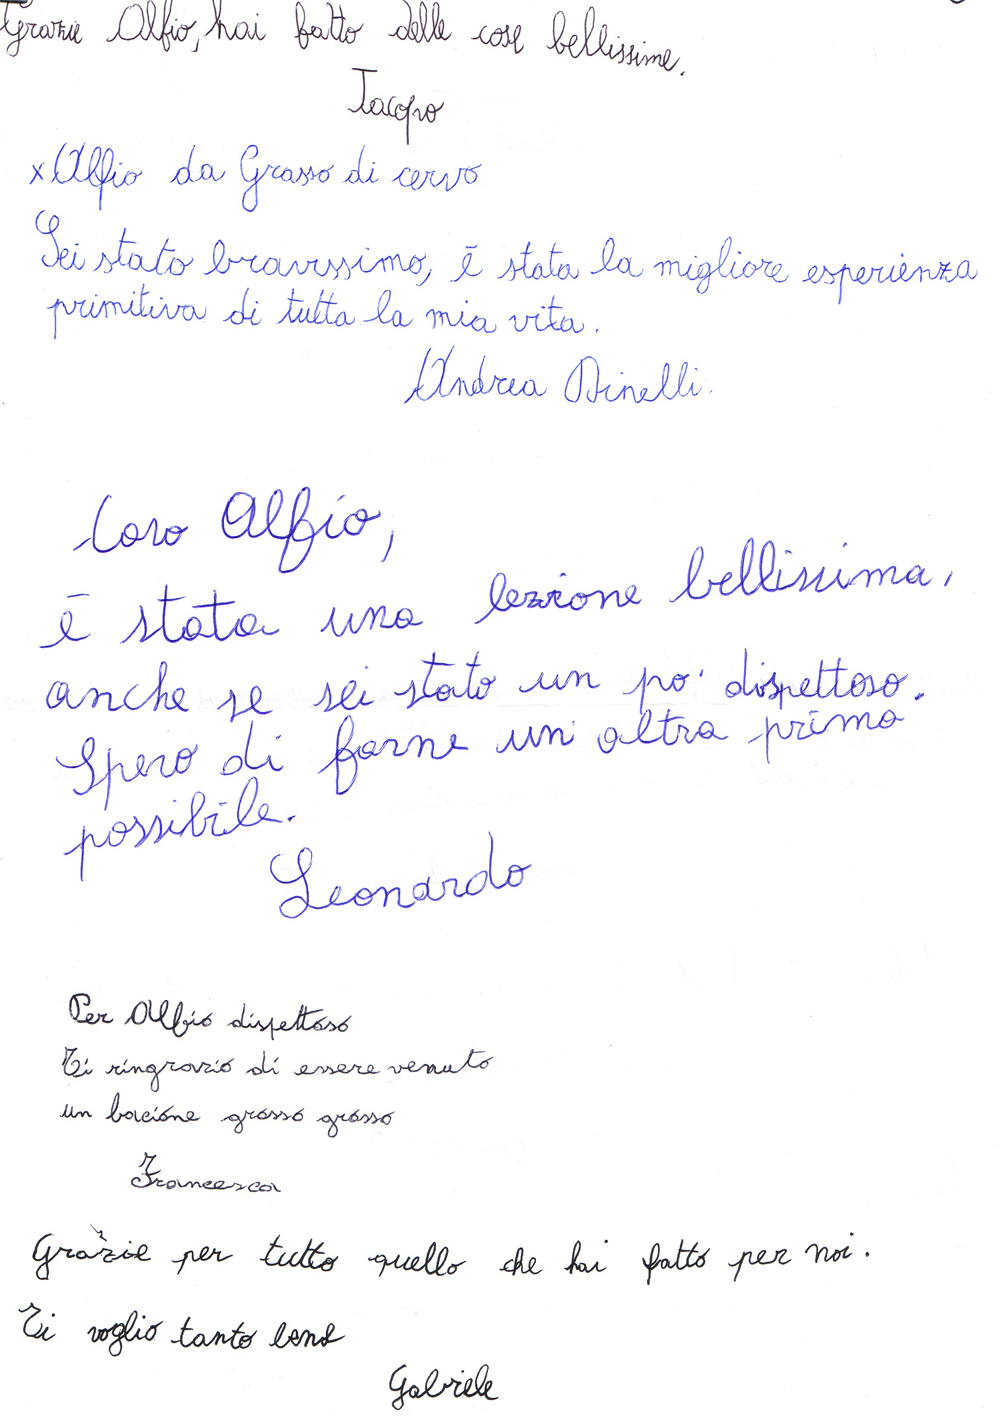 Grazie Alfio, hai fatto delle cose bellissime.
Jacopo
x Alfio da Grasso di cervo
Sei stato bravissimo, è stata la migliore esperienza
primitiva di tutta la mia vita.
Andrea Dinelli.
Caro Alfio,
è stata una lezione bellissima,
anche se sei stato un po' dispettoso.
Spero di farne un'altra prima
possibile.
Leonardo
Per Alfio dispettoso
Ti ringrazio di essere venuto
un bacione grosso grosso
Francesca
Grazie per tutto quello che hai fatto per noi.
Ti voglio tanto bene
Gabriele